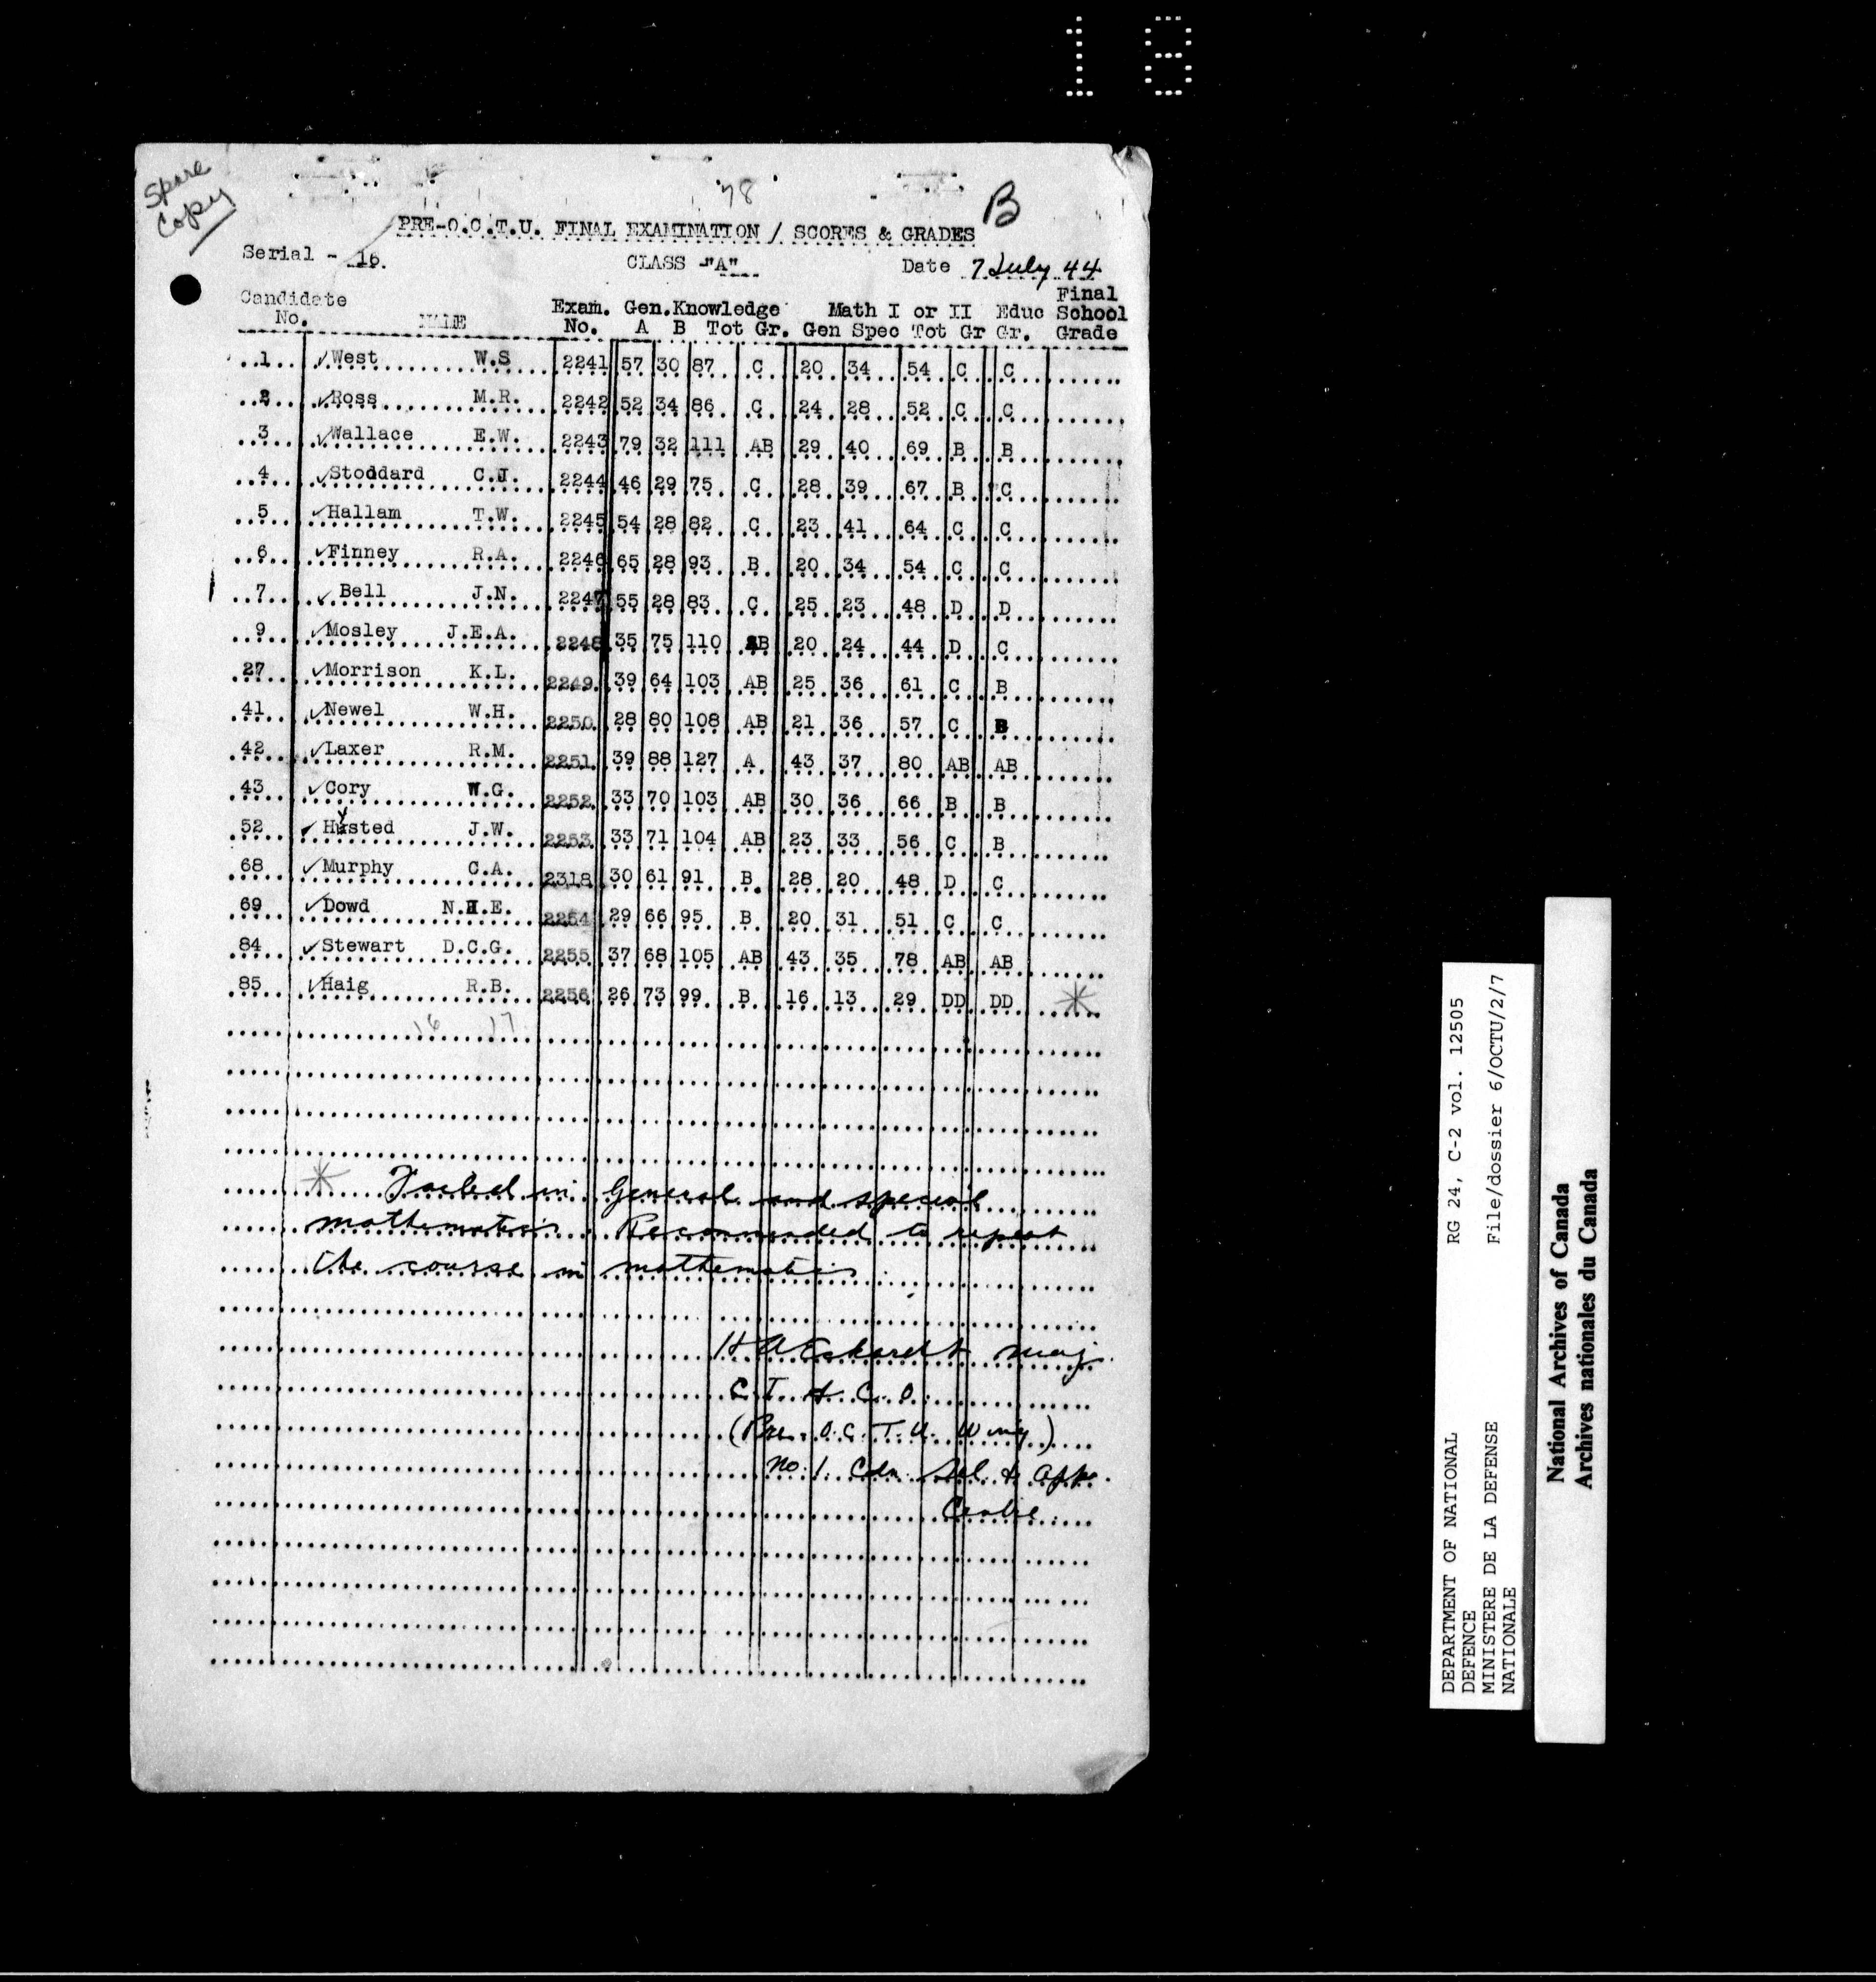 18
Spare
Copy
78
B
PRE-O.C.T.U. FINAL EXAMINATION / SCORES & GRADES
Serial - 16. CLASS -"A" Date 7 July 44
Candidate No. NAME Exam. No. Gen.Knowledge A B Tot Gr. Math I or II Gen Spec Tot Gr Educ Gr. Final School Grade
1 West W.S 2241 57 30 87 C 20 34 54 C C
2 Ross M.R. 2242 52 34 86 C 24 28 52 C C
3 Wallace E.W. 2243 79 32 111 AB 29 40 69 B B
4 Stoddard C.J. 2244 46 29 75 C 28 39 67 B C
5 Hallam T.W. 2245 54 28 82 C 23 41 64 C C
6 Finney R.A. 2246 65 28 93 B 20 34 54 C C
7 Bell J.N. 2247 55 28 83 C 25 23 48 D D
9 Mosley J.E.A. 2248 35 75 110 AB 20 24 44 D C
27 Morrison K.L. 2249 39 64 103 AB 25 36 61 C B
41 Newel W.H. 2250 28 80 108 AB 21 36 57 C B
42 Laxer R.M. 2251 39 88 127 A 43 37 80 AB AB
43 Cory W.G. 2252 33 70 103 AB 30 36 66 B B
52 Hysted J.W. 2253 33 71 104 AB 23 33 56 C B
68 Murphy C.A. 2318 30 61 91 B 28 20 48 D C
69 Dowd N.H.E. 2254 29 66 95 B 20 31 51 C C
84 Stewart D.C.G. 2255 37 68 105 AB 43 35 78 AB AB
85 Haig R.B. 2256 26 73 99 B 16 13 29 DD DD *
16 17
* Failed in General and special
mathematics. Recommended to repeat
the course in mathematics.
H A Eckardt Maj.
C.I. & C.O.
(Pre-O.C.T.U. Wing)
No. 1. Cdn. Sel. & App.
Centre
DEPARTMENT OF NATIONAL
DEFENCE
MINISTERE DE LA DEFENSE
NATIONALE
RG 24, C-2 vol. 12505
File/dossier 6/OCTU/2/7
National Archives of Canada
Archives nationales du Canada